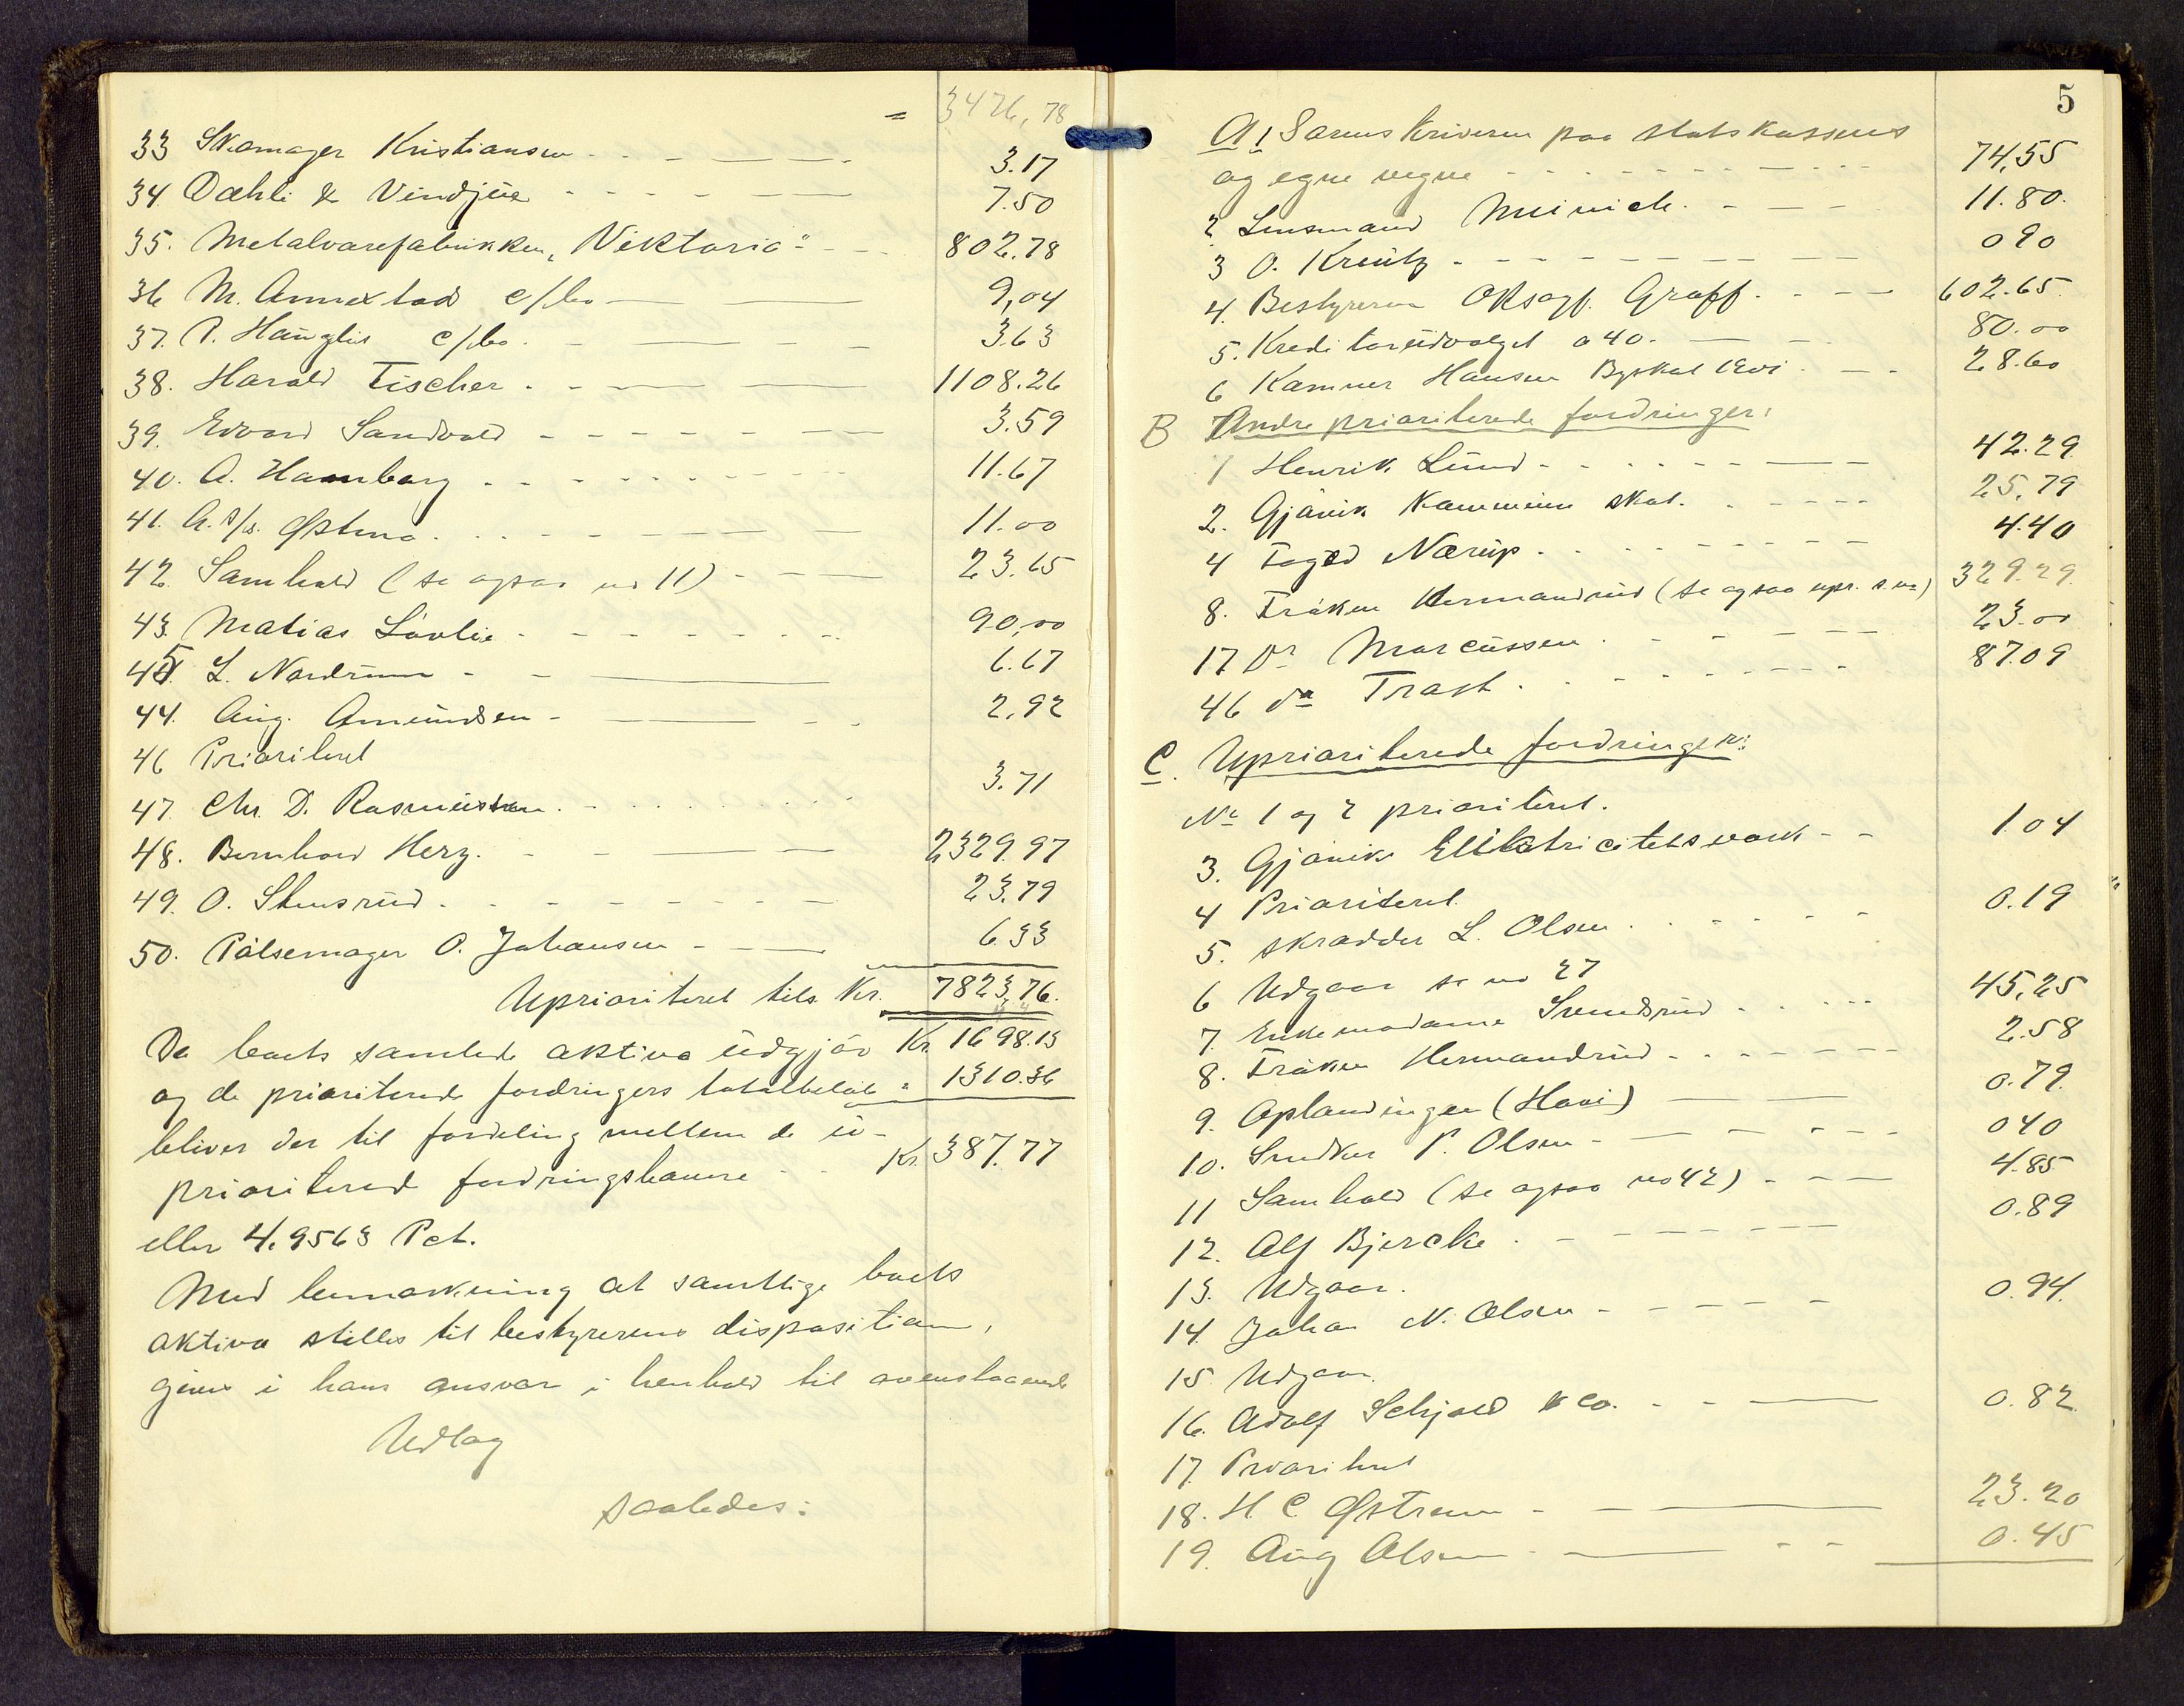 = 3476,78
33 Skomager Kristiansen 3.17
34. Dæhli & Vindju 7.50
35. Metalvarefabrikken „Viktoria“ 802.78
36 M. Annextad c/bo 9,04
37. P. Hauglis c/bo. 3.63
38. Harald Fischer 1108.26
39. Edvard Sandvold 3.59
40. A. Hamborg 11.67
41. A. s/s. Østmo. 11.00
42. Samhold (se ogsaa no 11) 23.65
43. Matias Lövlie 90,00
45 L. Nordrum 6.67
44. Aug. Amundsen 2,92
46 Prioritert
47. Chr. D. Rasmussen. 3.71
48. Bernhard Herz. 2329.97
49. O. Stensrud. 23.79
50. Pölsemager O. Johansen 6.33
Uprioritert tils. Kr. 7823,76.
Da boets samlede aktiva udgjör Kr. 1698.13
og de prioriterede fordringers totalbelöb = 1310.36
bliver der til fordeling mellem de u-
prioriterede fordringshavere Kr. 387.77
eller 4.9563 Pct.
Med bemærkning at samtlige boets
aktiva stilles til bestyrerens disposition,
gives i hans ansvar i henhold til ovenstaaende
Udlæg
saaledes:
5
A 1 Sorenskriveren paa statskassens
og egne vegne 74,55
2 Lensmand Meinich. 11.80.
3 O. Kreutz 0 90
4. Bestyreren Oksagf. Graff. 602.65.
5. Kreditorudvalget a 40. 80.00
6 Kamner Hansen Byskat 28.60
B Andre prioriterede fordringer:
1 Henrik Lund 42.29
2. Gjövik Kommune skat. 25,79
4 Foged Nærup. 4.40
8. Fröken Hermandrud (se ogsaa upr. s. no) 329.29.
17 Dr Marcussen 23.00
46 dr Trast. 87.09
C. Uprioriterede fordringer:
No 1 og 2 prioritert.
3. Gjöviks Elektricitetsverk 1.04
4 Prioritert.
5. skrædder L. Olsen 0.19
6 Udgaar se no 27
7. Enkemadame Svendsrud 45,25
8. Fröken Hermandrud 2.58
9. Oplandingen (Hovi) 0.79.
10. Snedker P. Olsen 0 40
11 Samhold (se ogsaa no 42) 4.85
12. Alf Bjercke 0.89
13. Udgaar.
14. Johan N. Olsen 0.94.
15 Udgaar.
16. Adolf Schjold & Co. 0.82
17. Prioritert
18. H C Østrem 23.20
19. Aug Olsen 0.45